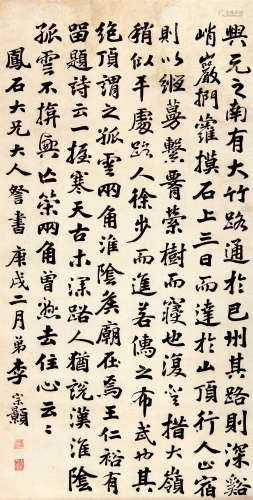 興元之南有大竹路通於巴州其路則深谿
峭巖捫蘿摸石上三日而達於山頂行人止宿
則以絙蔓繫脊縈樹而寢也復登措大嶺
稍似平處路人徐步而進若儒之布武也其
絶頂謂之孤雲兩角淮陰矦廟在焉王仁裕有
留題詩云一握寒天古木深路人猶説漢淮陰
孤雲不掩興亡策兩角曾懸去住心云〻
鳳石大兄大人詧書 庚戌二月弟李宗顥